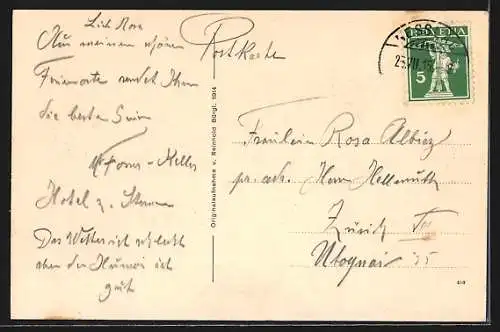 Lieb Rosa
Aus meinem schönen
Ferienorte sendet Ihnen
die besten
Hotel z.
Das Wetter ist schlecht
aber der Humor ist
gut
Postkarte
Originalaufnahme v. Reinhold Bürgi. 1914
HELVETIA
5
Fräulein Rosa Albiez
pr. adr. Herrn Hellmuth
Zürich
Utoquai 35